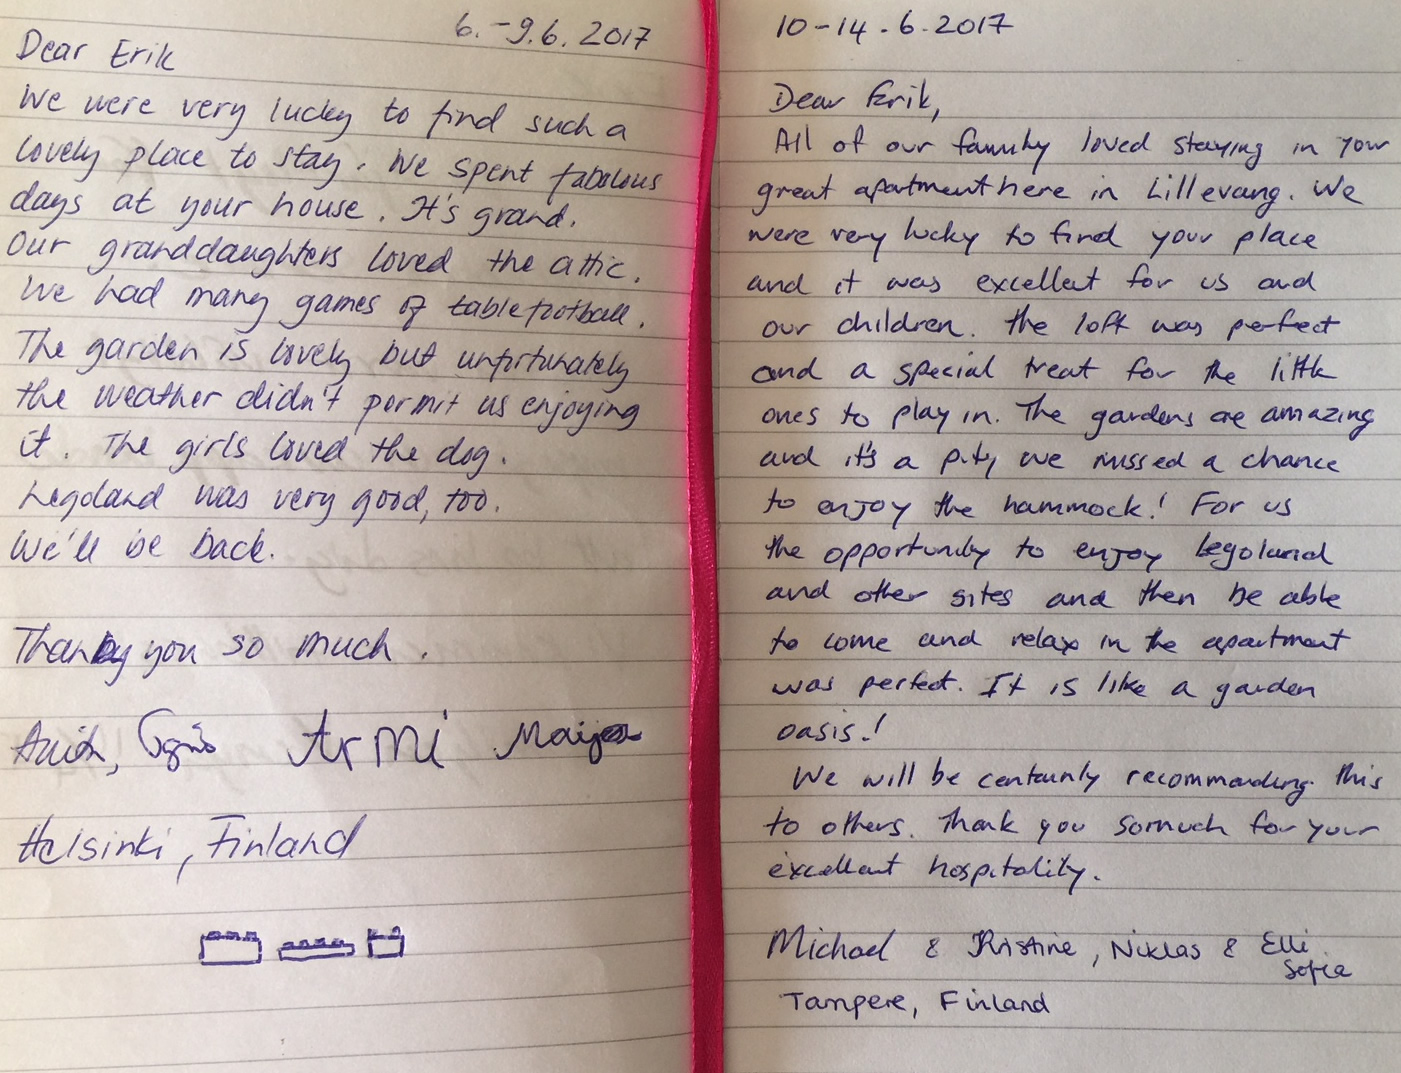 6.-9.6.2017
Dear Erik
We were very lucky to find such a
lovely place to stay. We spent fabolous
days at your house. It's grand.
Our granddaughters loved the attic.
We had many games of tablefootball.
The garden is lovely but unfortunately
the weather didn't permit us enjoying
it. The girls loved the dog.
Legoland was very good, too.
We'll be back.
you so much.
Armi Maija
Helsinki, Finland
10-14.6.2017
Dear Erik,
All of our family loved staying in your
great apartment here in Lillevang. We
were very lucky to find your place
and it was excellent for us and
our children. The loft was perfect
and a special treat for the little
ones to play in. The gardens are amazing
and it's a pity we missed a chance
to enjoy the hammock! For us
the opportunity to enjoy Legoland
and other sites and then be able
to come and relax in the apartment
was perfect. It is like a garden
oasis!
We will be certainly recommending this
to others. Thank you so much for your
excellent hospitality.
Michael & Kristine, Niklas & Elli
Sofia
Tampere, Finland